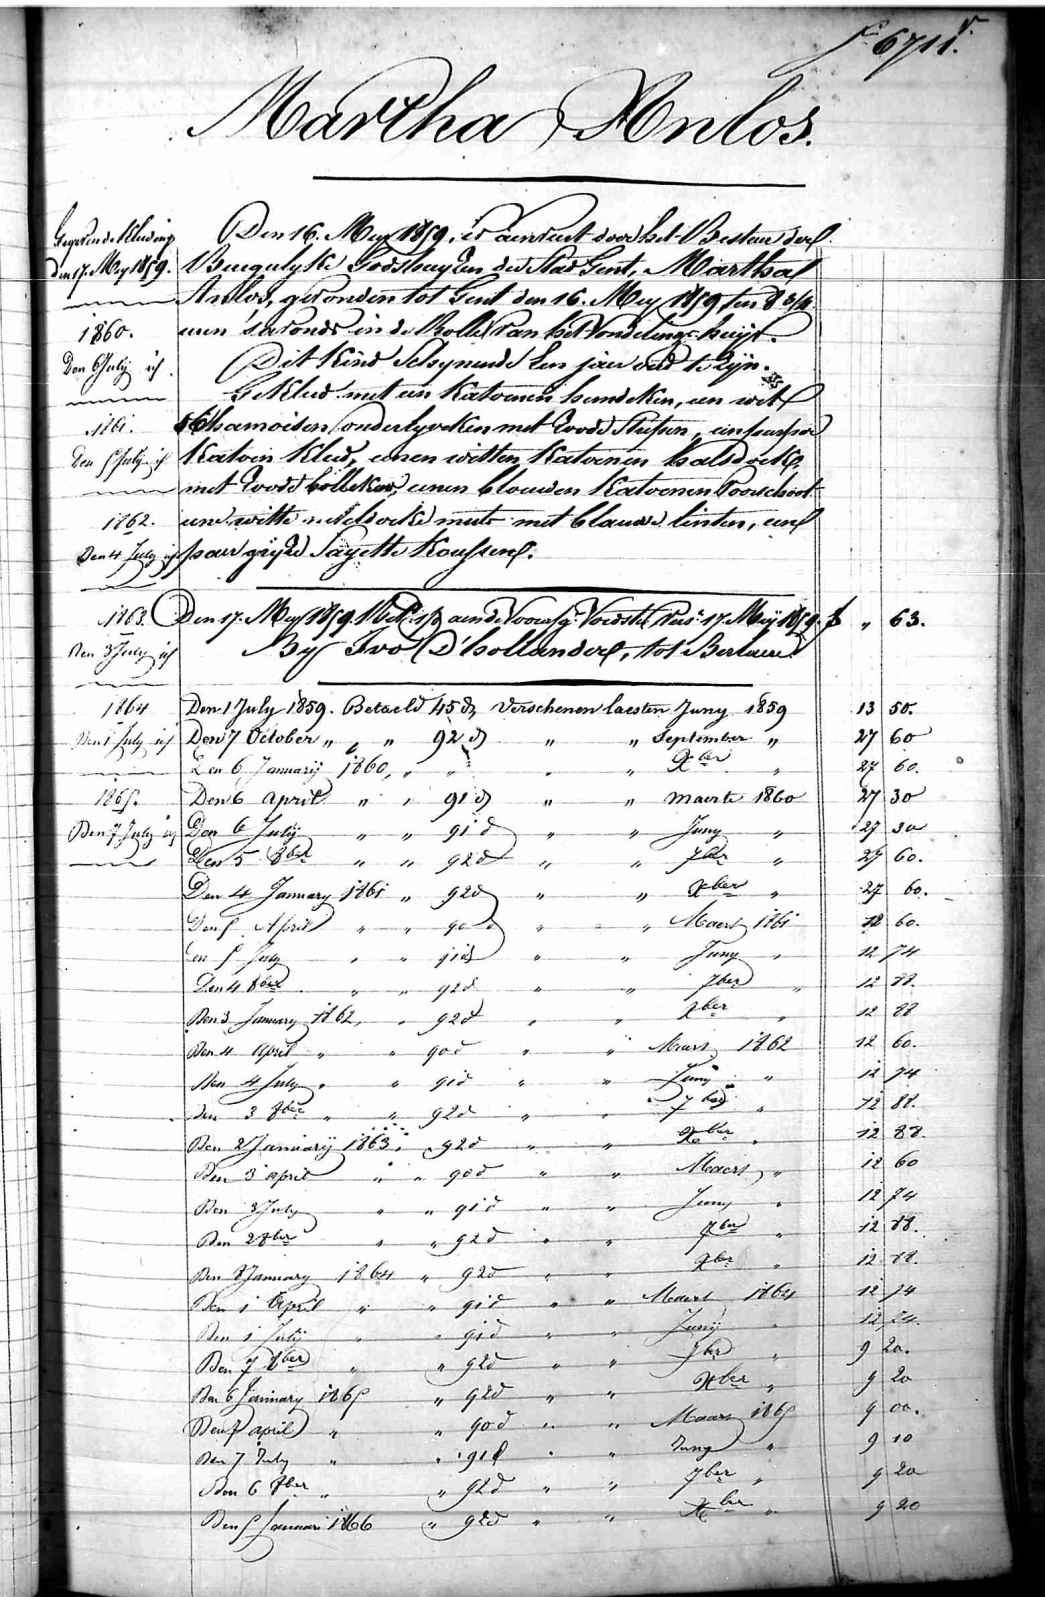 fo 671 v.
Martha Anlos.
Gegevende Kleding
den 17. Mey 1859.
1860.
Den 6 July
1861.
Den 5 July
1862.
Den 4 July
1863.
Den 3 July
1864
Den 1 July
1865.
Den 7 July
Den 16. Mey 1859, is aenveert door het Bestuer der
Burgelyke Godshuyzen der Stad Gent, Martha
Anlos, gevonden tot Gent den 16. Mey 1859, ten 8 3/4
uren 's avonds in de Rolle van het Vondelinge-huys.
Dit Kind schynende een jaer oud te zyn.
Gekleed met een katoenen hemdeken, een wit
chamoisen onderlyveken met roode streepen, een
katoen kleed, eenen witten katoenen halsdoek,
met roode bollekens, eenen blauwen katoenen voorschoot
eene witte neteldoeke muts met blauwe linten, een
paer gryze Sayette Koussens.
Den 17. Mey 1859 17 Mey 1859. f „ 63.
By Ivo D'hollander, tot Berlaere.
Den 1 July 1859. Betaeld 45 d verschenen laesten Juny 1859 13 50.
Den 7 October „ „ 92 d „ „ September „ 27 60
Den 6 January 1860, „ „ „ „ Xber „ 27 60.
Den 6 April „ „ 91 d „ „ Maerte 1860 27 30
Den 6 July „ „ 91 d „ „ Juny „ 27 30
Den 5 8ber „ „ 92 d „ „ 7ber „ 27 60.
Den 4 January 1861 „ 92 d „ „ Xber „ 27 60.
Den 5 April „ „ 90 d „ „ Maert 1861 12 60.
Den 5 July „ „ 91 d „ „ Juny „ 12 74
Den 4 8ber „ „ 92 d „ „ 7ber „ 12 88.
Den 3 January 1862, „ 92 d „ „ Xber „ 12 88
Den 4 April „ „ 90 d „ „ Maert 1862 12 60.
Den 4 July „ „ 91 d „ „ Juny „ 12 74
Den 3 8ber „ „ 92 d „ „ 7ber „ 12 88.
Den 2 January 1863, „ 92 d „ „ Xber „ 12 88.
Den 3 april „ „ 90 d „ „ Maert „ 12 60
Den 3 July „ „ 91 d „ „ Juny „ 12 74
Den 2 8ber „ „ 92 d „ „ 7ber „ 12 88.
Den 8 January 1864 „ 92 d „ „ Xber „ 12 88.
Den 1 April „ „ 91 d „ „ Maert 1864 12 74
Den 1 July „ „ 91 d „ „ Juny „ 12 74.
Den 7 8ber „ „ 92 d „ „ 7ber „ 9 20.
Den 6 January 1865 „ 92 d „ „ Xber „ 9 20
Den 7 april „ „ 90 d „ „ Maart 1865 9 00.
Den 7 July „ „ 91 d „ „ Juny „ 9 10
Den 6 8ber „ „ 92 d „ „ 7ber „ 9 20
Den 5 Januari 1866 „ 92 d „ „ Xber „ 9 20